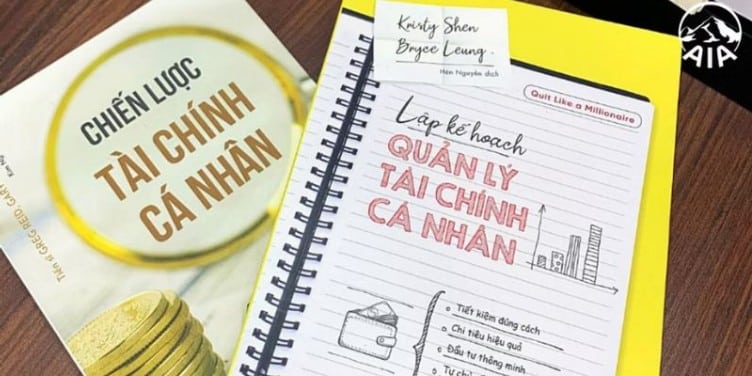 CHIẾN LƯỢC
TÀI CHÍNH
CÁ NHÂN
Tiến sĩ GREG REID, GARY
Kristy Shen
Bryce Leung.
Hân Nguyên dịch
Quit Like a Millionaire
Lập kế hoạch
QUẢN LÝ
TÀI CHÍNH
CÁ NHÂN
Tiết kiệm đúng cách
Chi tiêu hiệu quả
Đầu tư thông minh
AIA